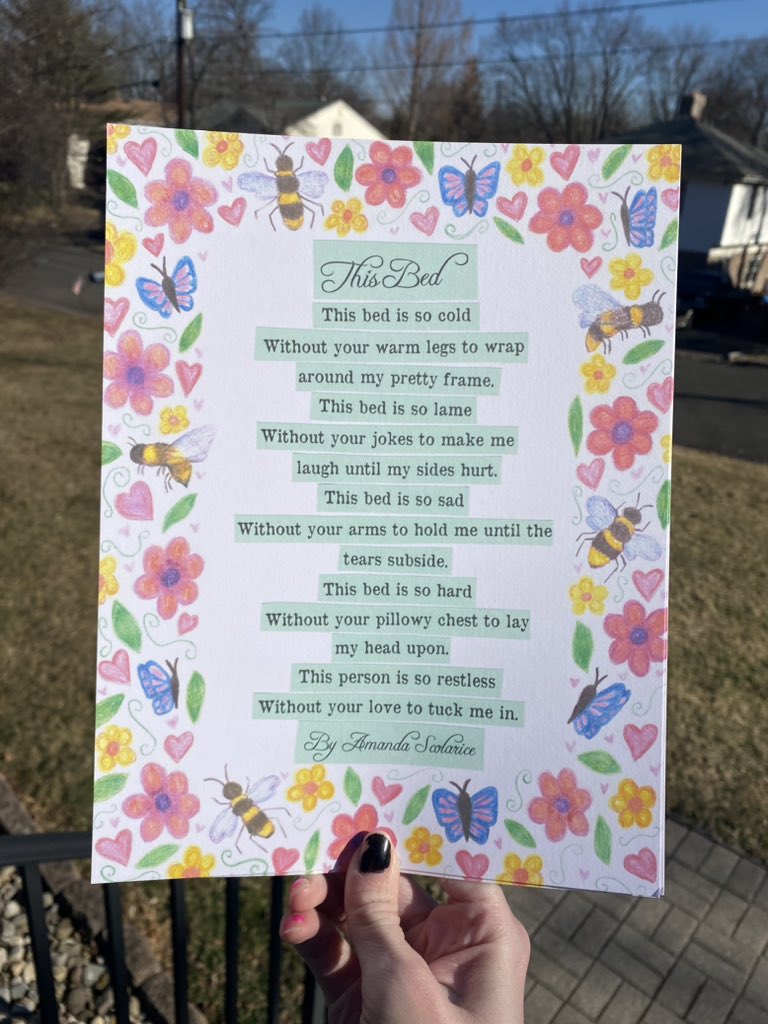 This Bed
This bed is so cold
Without your warm legs to wrap
around my pretty frame.
This bed is so lame
Without your jokes to make me
laugh until my sides hurt.
This bed is so sad
Without your arms to hold me until the
tears subside.
This bed is so hard
Without your pillowy chest to lay
my head upon.
This person is so restless
Without your love to tuck me in.
By Amanda Scolarice